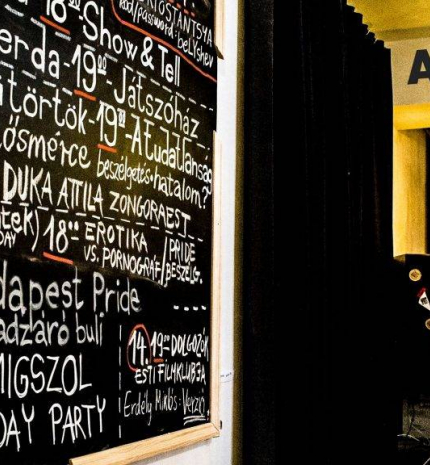 18⁰⁰
KERTOSTANTSYA
kod/password: beLyshev
Show & Tell
erda-19⁰⁰ Játszóház
törtök-19⁰⁰ A tudatlanság
ősmérce beszélgetés hatalom?
DUKA ATTILA ZONGORAEST
tek) 18⁰⁰ EROTIKA
DAY VS. PORNOGRÁF/
PRIDE
BESZÉLG.
dapest Pride
adzáró buli
MIGSZOL
DAY PARTY
14. 19⁰⁰ DOLGOZÓK
ESTI FILMKLUBJA
Erdély Miklós: Verzió
A